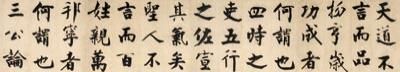 天道不
言而品
物亨歲
功成者
何謂也
四時之
吏五行
之佐宣
其氣矣
聖人不
言而百
姓親萬
邦寧者
何謂也
三公論